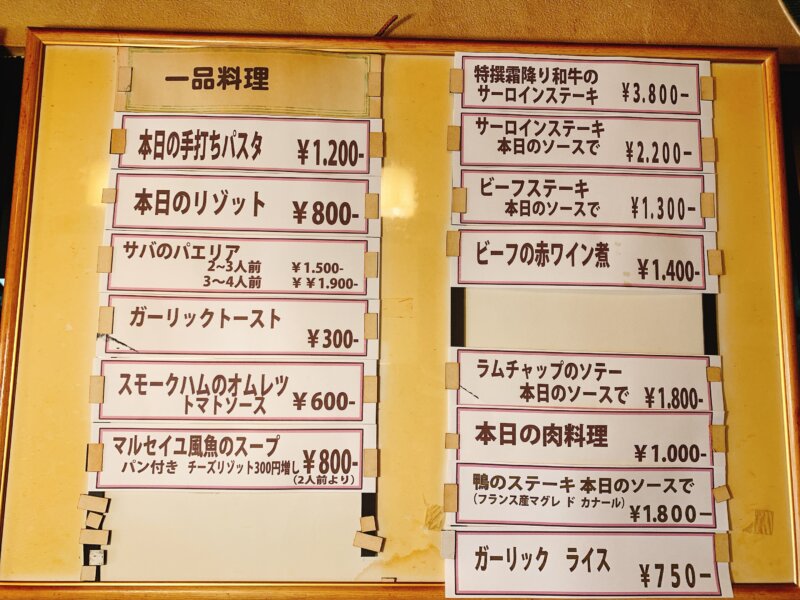 一品料理
本日の手打ちパスタ ¥1.200-
本日のリゾット ¥800-
サバのパエリア
2~3人前 ¥1.500-
3~4人前 ¥¥1.900-
ガーリックトースト
¥300-
スモークハムのオムレツ
トマトソース ¥600-
マルセイユ風魚のスープ
パン付き チーズリゾット300円増し ¥800-
(2人前より)
特撰霜降り和牛の
サーロインステーキ ¥3.800-
サーロインステーキ
本日のソースで ¥2.200-
ビーフステーキ
本日のソースで ¥1.300-
ビーフの赤ワイン煮
¥1.400-
ラムチャップのソテー
本日のソースで ¥1.800-
本日の肉料理
¥1.000-
鴨のステーキ 本日のソースで
(フランス産マグレ ド カナール)
¥1.800-
ガーリック ライス
¥750-